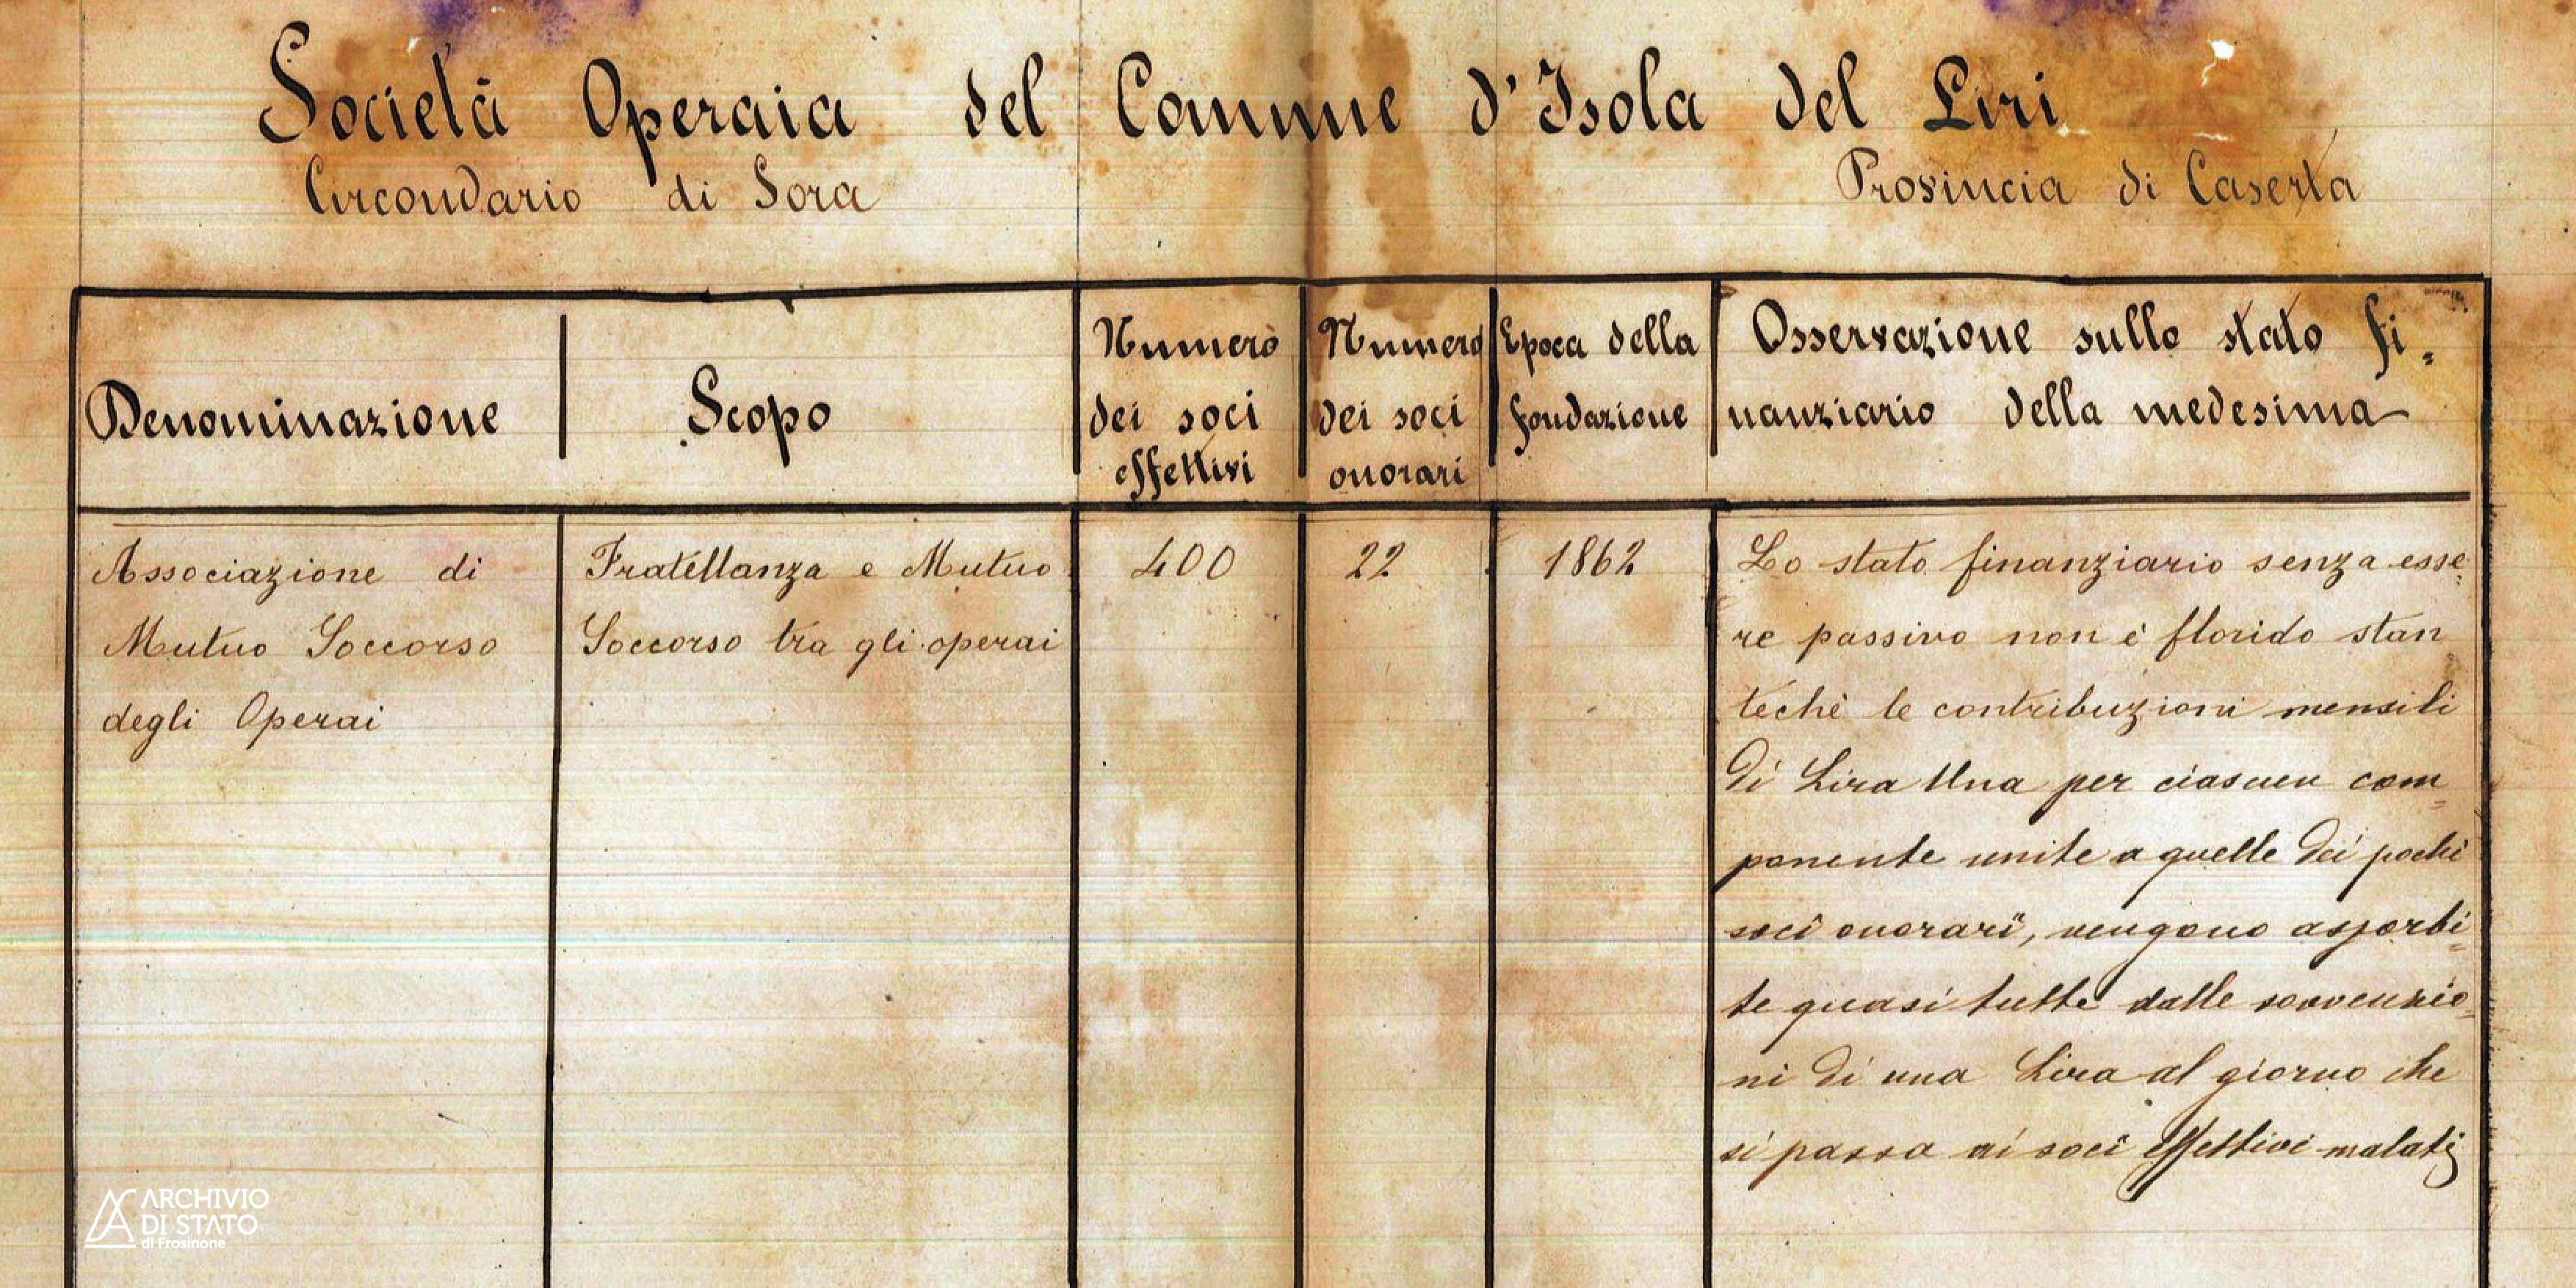 Società Operaia del Comune d'Isola del Liri
Circondario di Sora
Provincia di Caserta
Denominazione
Scopo
Numero
dei soci
effettivi
Numero
dei soci
onorari
Epoca della
fondazione
Osservazione sullo stato fi=
nanziario della medesima
Associazione di
Mutuo Soccorso
degli Operai
Fratellanza e Mutuo
Soccorso tra gli operai
400
22
1862
Lo stato finanziario senza esse=
re passivo non è florido stan
techè le contribuzioni mensili
di Lira Una per ciascun com=
ponente unite a quelle dei pochi
soci onorarî, vengono assorbi=
te quasi tutte dalle sovvenzio=
ni di una Lira al giorno che
si passa ai soci effettivi malati
ARCHIVIO
DI STATO
di Frosinone